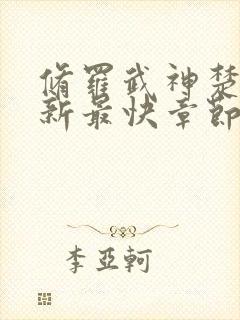 脩羅武神楚
新最快章節
李亞軻